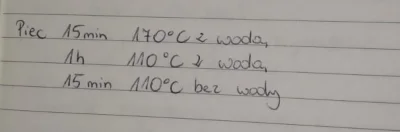 Piec 15 min 170°C z wodą,
1h 110°C z wodą,
15 min 110°C bez wody